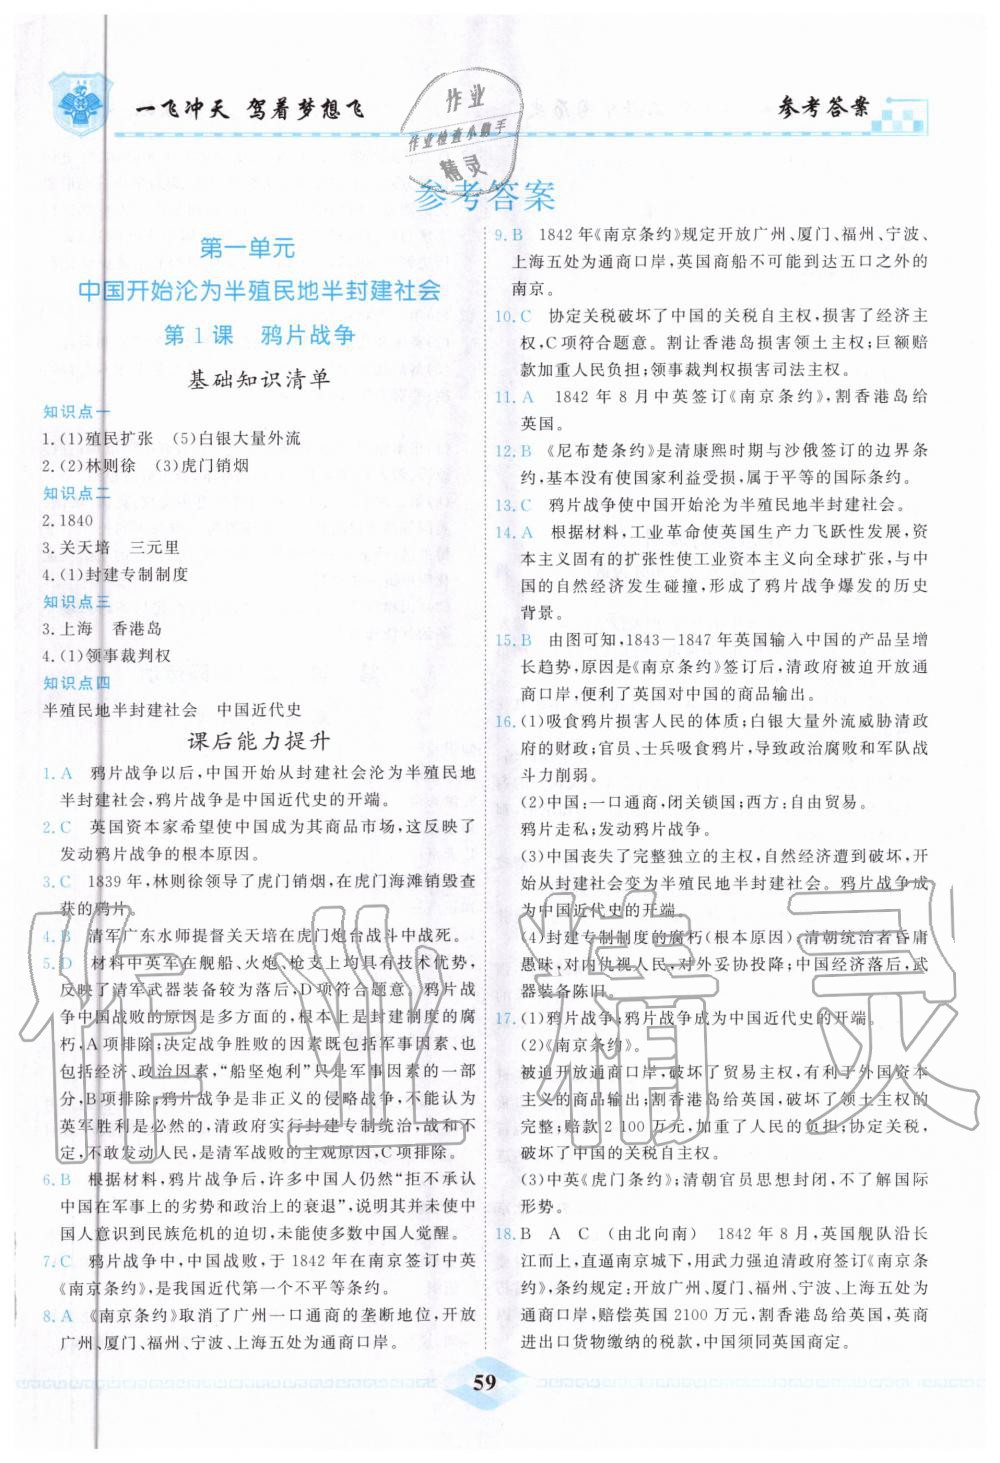 一飞冲天 驾着梦想飞
参考答案
作业
作业检查小助手
精灵
参考答案
第一单元
中国开始沦为半殖民地半封建社会
第1课 鸦片战争
基础知识清单
知识点一
1.(1)殖民扩张 (5)白银大量外流
2.(2)林则徐 (3)虎门销烟
知识点二
2.1840
3.关天培 三元里
4.(1)封建专制制度
知识点三
3.上海 香港岛
4.(1)领事裁判权
知识点四
半殖民地半封建社会 中国近代史
课后能力提升
1.A 鸦片战争以后,中国开始从封建社会沦为半殖民地
半封建社会,鸦片战争是中国近代史的开端。
2.C 英国资本家希望使中国成为其商品市场,这反映了
发动鸦片战争的根本原因。
3.C 1839年,林则徐领导了虎门销烟,在虎门海滩销毁查
获的鸦片。
4.B 清军广东水师提督关天培在虎门炮台战斗中战死。
5.D 材料中英军在舰船、火炮、枪支上均具有技术优势,
反映了清军武器装备较为落后,D项符合题意。鸦片战
争中国战败的原因是多方面的,根本上是封建制度的腐
朽,A项排除;决定战争胜败的因素既包括军事因素、也
包括经济、政治因素,“船坚炮利”只是军事因素的一部
分,B项排除;鸦片战争是非正义的侵略战争,不能认为
英军胜利是必然的,清政府实行封建专制统治,战和不
定,不敢发动人民,是清军战败的主观原因,C项排除。
6.B 根据材料,鸦片战争后,许多中国人仍然“拒不承认
中国在军事上的劣势和政治上的衰退”,说明鸦片战争没
使国人意识到民族危机的迫切,未能使多数中国人觉醒。
7.C 鸦片战争中,中国战败,于1842年在南京签订中英
《南京条约》,是我国近代第一个不平等条约。
8.A 《南京条约》取消了广州一口通商的垄断地位,开放
广州、厦门、福州、宁波、上海五处为通商口岸。
9.B 1842年《南京条约》规定开放广州、厦门、福州、宁波、
上海五处为通商口岸,英国商船不可能到达五口之外的
南京。
10.C 协定关税破坏了中国的关税自主权,损害了经济主
权,C项符合题意。割让香港岛损害领土主权;巨额赔
款加重人民负担;领事裁判权损害司法主权。
11.A 1842年8月中英签订《南京条约》,割香港岛给
英国。
12.B 《尼布楚条约》是清康熙时期与沙俄签订的边界条
约,基本没有使国家利益受损,属于平等的国际条约。
13.C 鸦片战争使中国开始沦为半殖民地半封建社会。
14.A 根据材料,工业革命使英国生产力飞跃性发展,资
本主义固有的扩张性使工业资本主义向全球扩张,与中
国的自然经济发生碰撞,形成了鸦片战争爆发的历史
背景。
15.B 由图可知,1843-1847年英国输入中国的产品呈增
长趋势,原因是《南京条约》签订后,清政府被迫开放通
商口岸,便利了英国对中国的商品输出。
16.(1)吸食鸦片损害人民的体质;白银大量外流威胁清政
府的财政;官员、士兵吸食鸦片,导致政治腐败和军队战
斗力削弱。
(2)中国:一口通商,闭关锁国;西方:自由贸易。
鸦片走私;发动鸦片战争。
(3)中国丧失了完整独立的主权,自然经济遭到破坏,开
始从封建社会变为半殖民地半封建社会。鸦片战争成
为中国近代史的开端。
(4)封建专制制度的腐朽(根本原因);清朝统治者昏庸
愚昧,对内仇视人民、对外妥协投降;中国经济落后,武
器装备陈旧。
17.(1)鸦片战争;鸦片战争成为中国近代史的开端。
(2)《南京条约》。
被迫开放通商口岸,破坏了贸易主权,有利于外国资本
主义的商品输出;割香港岛给英国,破坏了领土主权的
完整;赔款2 100万元,加重了人民的负担;协定关税,破
坏了中国的关税主权。
(3)中英《虎门条约》;清朝官员思想封闭,不了解国际
形势。
18.B A C (由北向南) 1842年8月,英国舰队沿长
江而上,直逼南京城下,用武力强迫清政府签订《南京条
约》,条约规定:开放广州、厦门、福州、宁波、上海五处为
通商口岸,赔偿英国2100万元,割香港岛给英国,英商
进出口货物缴纳的税款,中国须同英国商定。
59
作业精灵